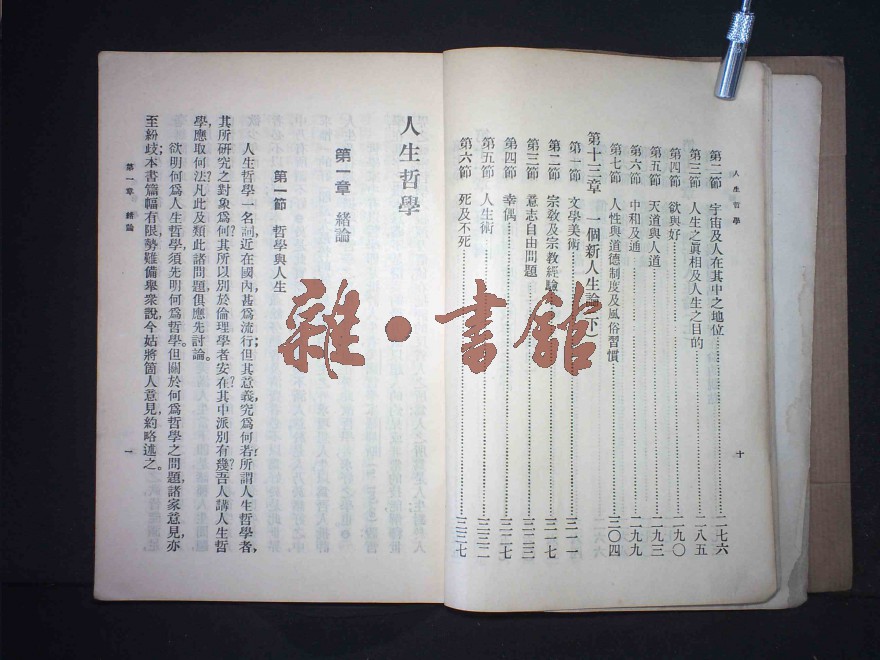 人生哲學
第二節 宇宙及人在其中之地位……二七六
第三節 人生之眞相及人生之目的……二八五
第四節 欲與好……二九〇
第五節 天道與人道……二九三
第六節 中和及通……二九九
第七節 人性與道德制度及風俗習慣……三〇四
第十三章 一個新人生論(下)
第一節 文學美術……三一一
第二節 宗教及宗教經驗……三一七
第三節 意志自由問題……三二三
第四節 幸偶……三二七
第五節 人生術……三三二
第六節 死及不死……三三七
十
人生哲學
第一章 緒論
第一節 哲學與人生
人生哲學一名詞,近在國內,甚爲流行;但其意義究爲何若?所謂人生哲學者,
其所研究之對象爲何?其所以別於倫理學者安在?其中派別有幾?吾人講人生哲
學應取何法?凡此及類此諸問題,俱應先討論。
欲明何爲人生哲學,須先明何爲哲學。但關於何爲哲學之問題,諸家意見,亦
至紛歧;本書篇幅有限,勢難備舉衆說,今姑將箇人意見,約略述之。
第一章 緒論
一
雜·書館